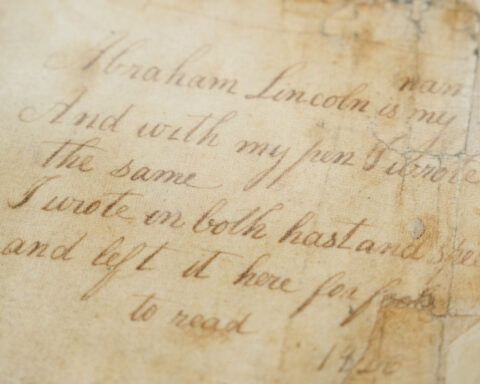 Abraham Lincoln is my nam
And with my pen I wrote
the same
I wrote in both hast and spee
and left it here for fools
to read